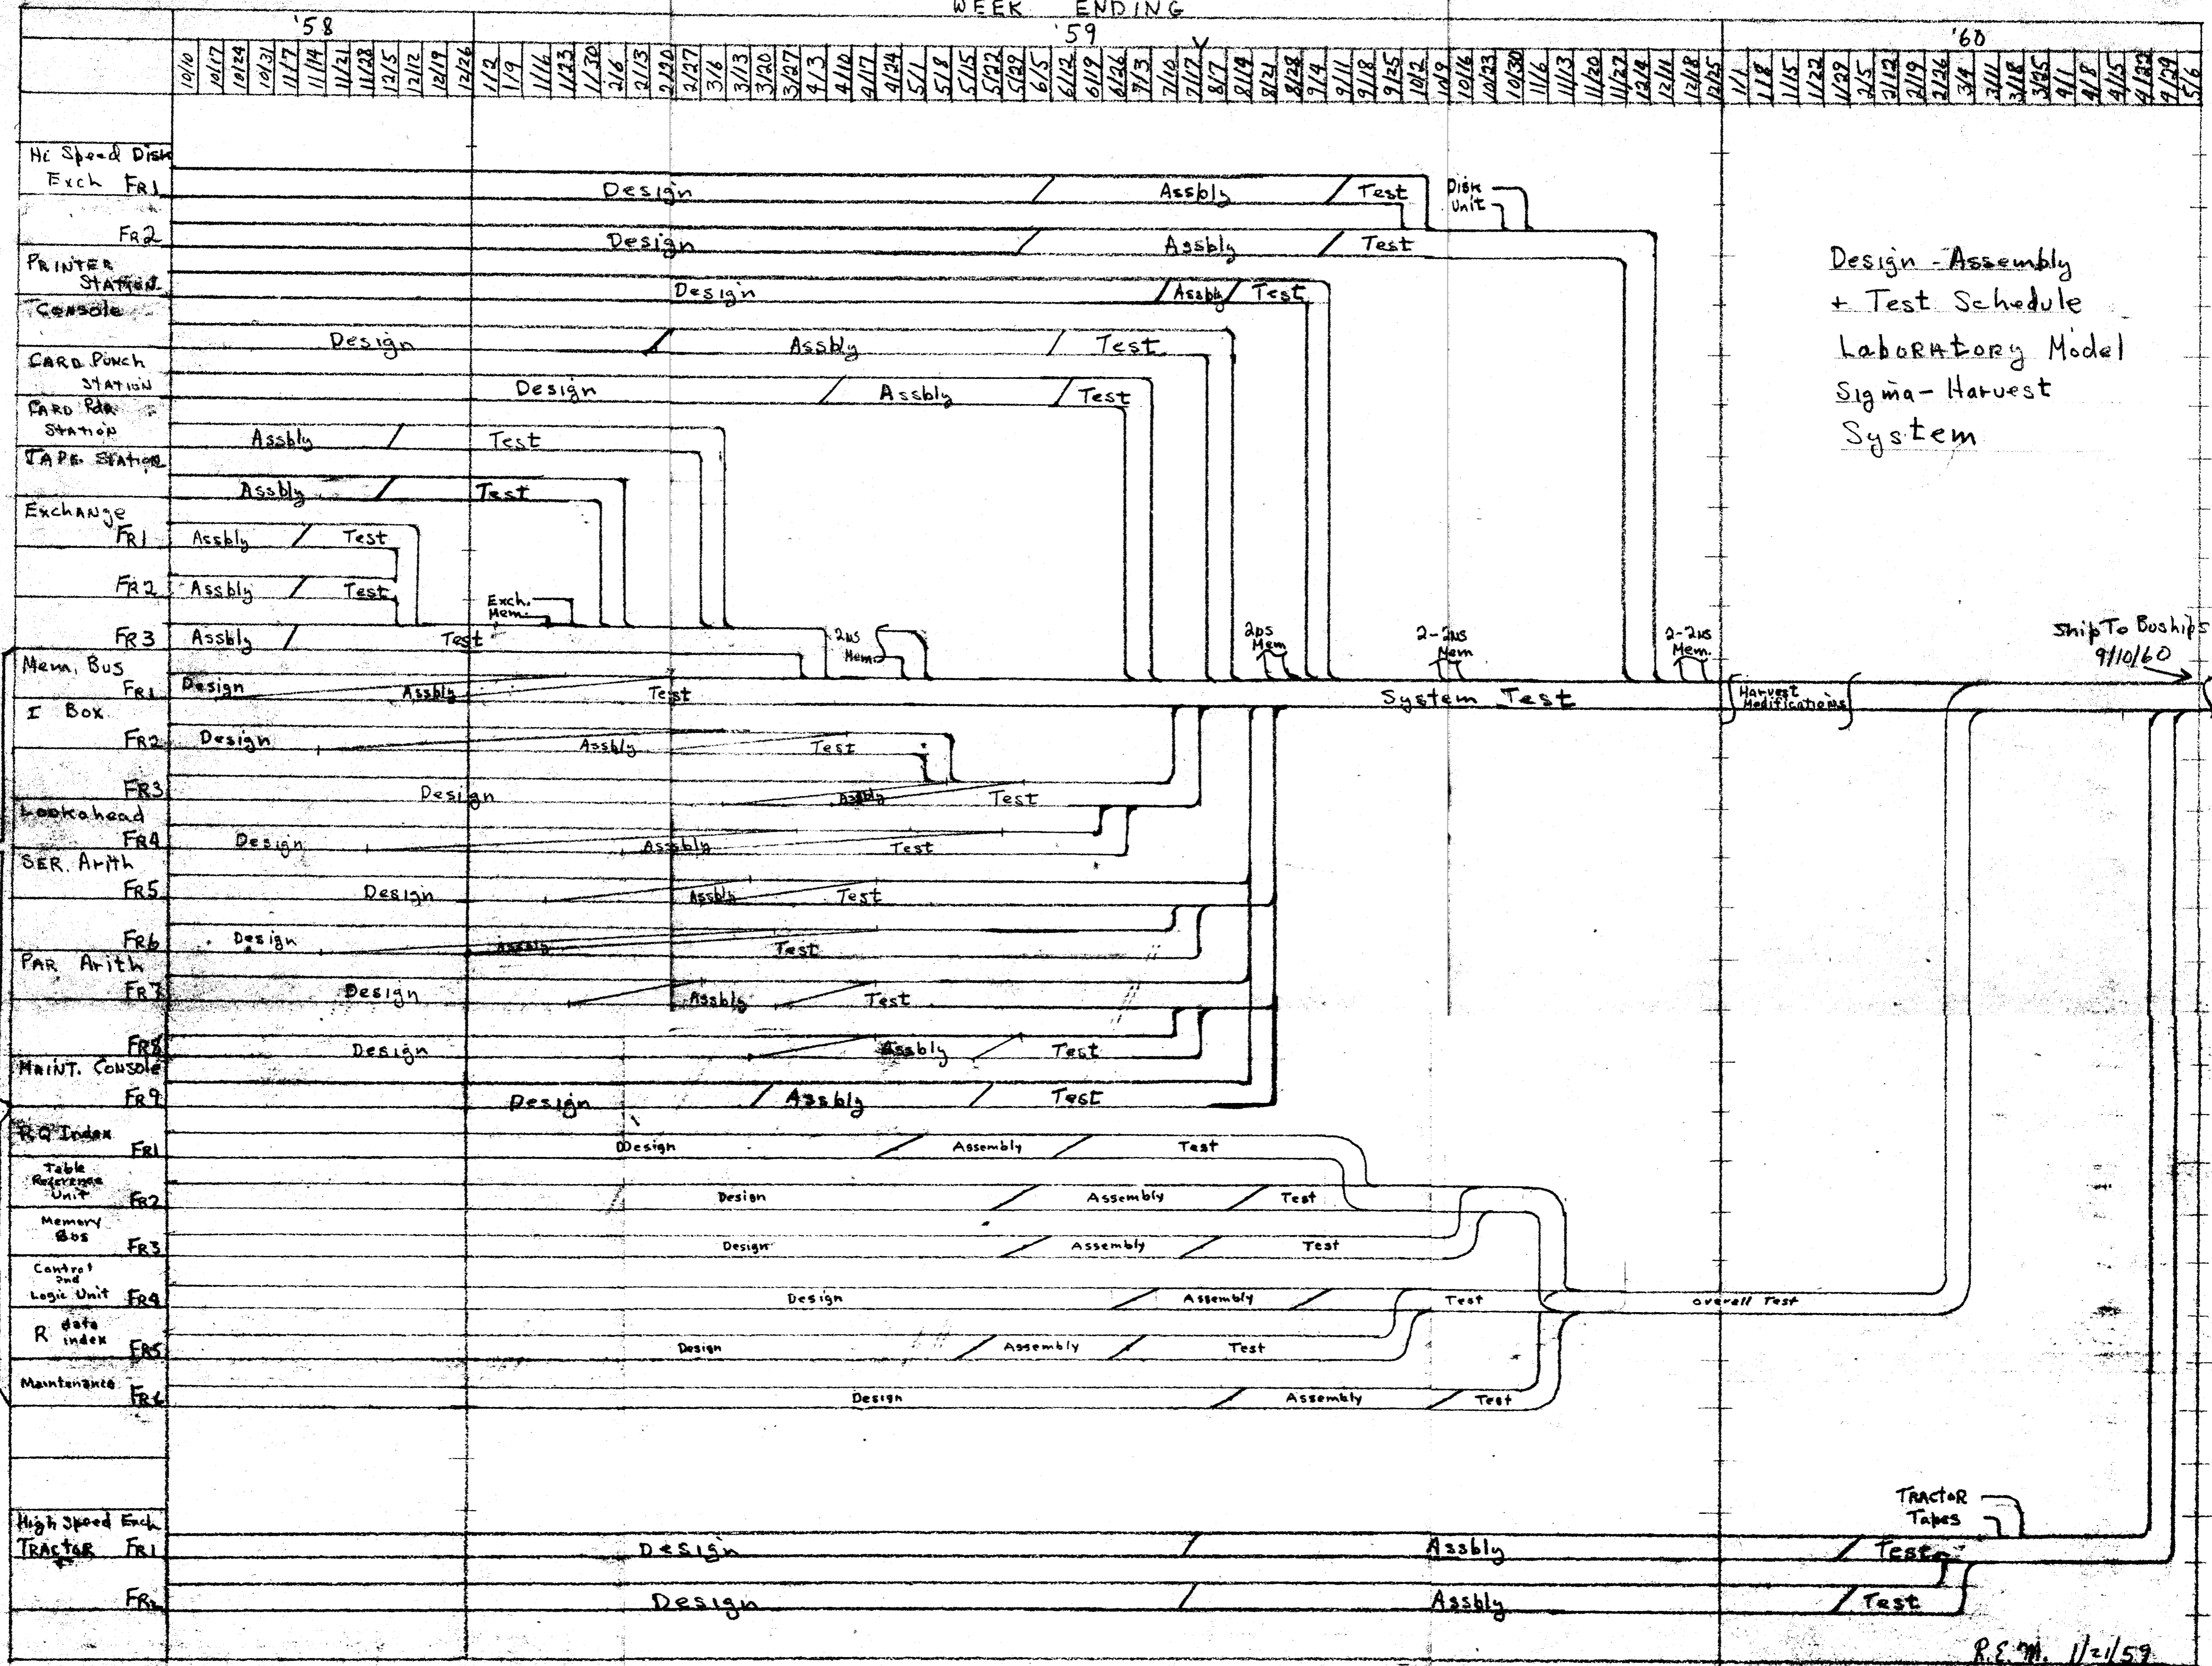 WEEK ENDING
'58 '59 '60
10/10 10/17 10/24 10/31 11/7 11/14 11/21 11/28 12/5 12/12 12/19 12/26 1/2 1/9 1/16 1/23 1/30 2/6 2/13 2/20 2/27 3/6 3/13 3/20 3/27 4/3 4/10 4/17 4/24 5/1 5/8 5/15 5/22 5/29 6/5 6/12 6/19 6/26 7/3 7/10 7/17 8/7 8/14 8/21 8/28 9/4 9/11 9/18 9/25 10/2 10/9 10/16 10/23 10/30 11/6 11/13 11/20 11/27 12/4 12/11 12/18 12/25 1/1 1/8 1/15 1/22 1/29 2/5 2/12 2/19 2/26 3/4 3/11 3/18 3/25 4/1 4/8 4/15 4/22 4/29 5/6
Hi Speed Disk
Exch FR1 Design Assbly Test Disk
Unit
FR2 Design Assbly Test
Design - Assembly
+ Test Schedule
Laboratory Model
Sigma - Harvest
System
PRINTER
STATION Design Assbly Test
Console Design Assbly Test
CARD PUNCH
STATION Design Assbly Test
CARD Rdr
STATION Assbly Test
TAPE STATION Assbly Test
Exchange
FR1 Assbly Test
FR2 Assbly Test
Exch.
Mem.
FR3 Assbly Test
2us
Mem
2us
Mem
2-2us
Mem
2-2us
Mem.
Ship To Buships
9/10/60
Mem. Bus
FR1 Design Assbly Test System Test Harvest
Modifications
I Box
FR2 Design Assbly Test
FR3 Design Assbly Test
Lookahead
FR4 Design Assbly Test
SER. Arith
FR5 Design Assbly Test
FR6 Design Assbly Test
PAR Arith
FR7 Design Assbly Test
FR8 Design Assbly Test
MAINT. CONSOLE
FR9 Design Assbly Test
RQ Index
FR1 Design Assembly Test
Table
Reference
Unit FR2 Design Assembly Test
Memory
Bus FR3 Design Assembly Test
Control
and
Logic Unit FR4 Design Assembly Test Overall Test
R data
index FR5 Design Assembly Test
Maintenance FR6 Design Assembly Test
TRACTOR
Tapes
High Speed Exch
TRACTOR FR1 Design Assbly Test
FR2 Design Assbly Test
R.E.M. 1/21/59